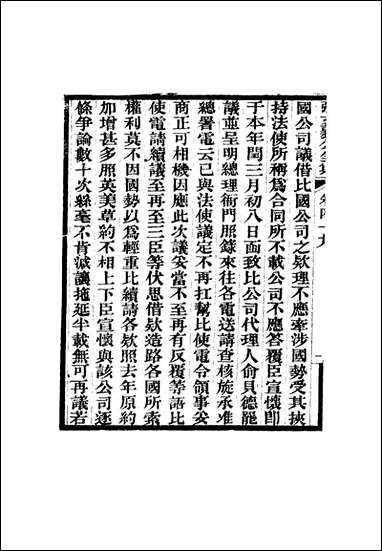 國公司議借比國公司之欵理不應牽涉國勢受其挾
持法使所稱為合同所不載公司不應答覆臣宣懷即
于本年閏三月初八日面致比公司代理人俞貝德罷
議並呈明總理衙門照錄來往各電送請查核旋承准
總署電云已與法使議定不再扛幫比使電令領事妥
商正可相機因應此次議妥當不至再有反覆等語比
使電請續議至再至三臣等伏思借欵造路各國所索
權利莫不因國勢以為輕重比續請各欵照去年原約
加增甚多照英美草約不相上下臣宣懷與該公司逐
條爭論數十次絲毫不肯減讓拖延半載無可再議若